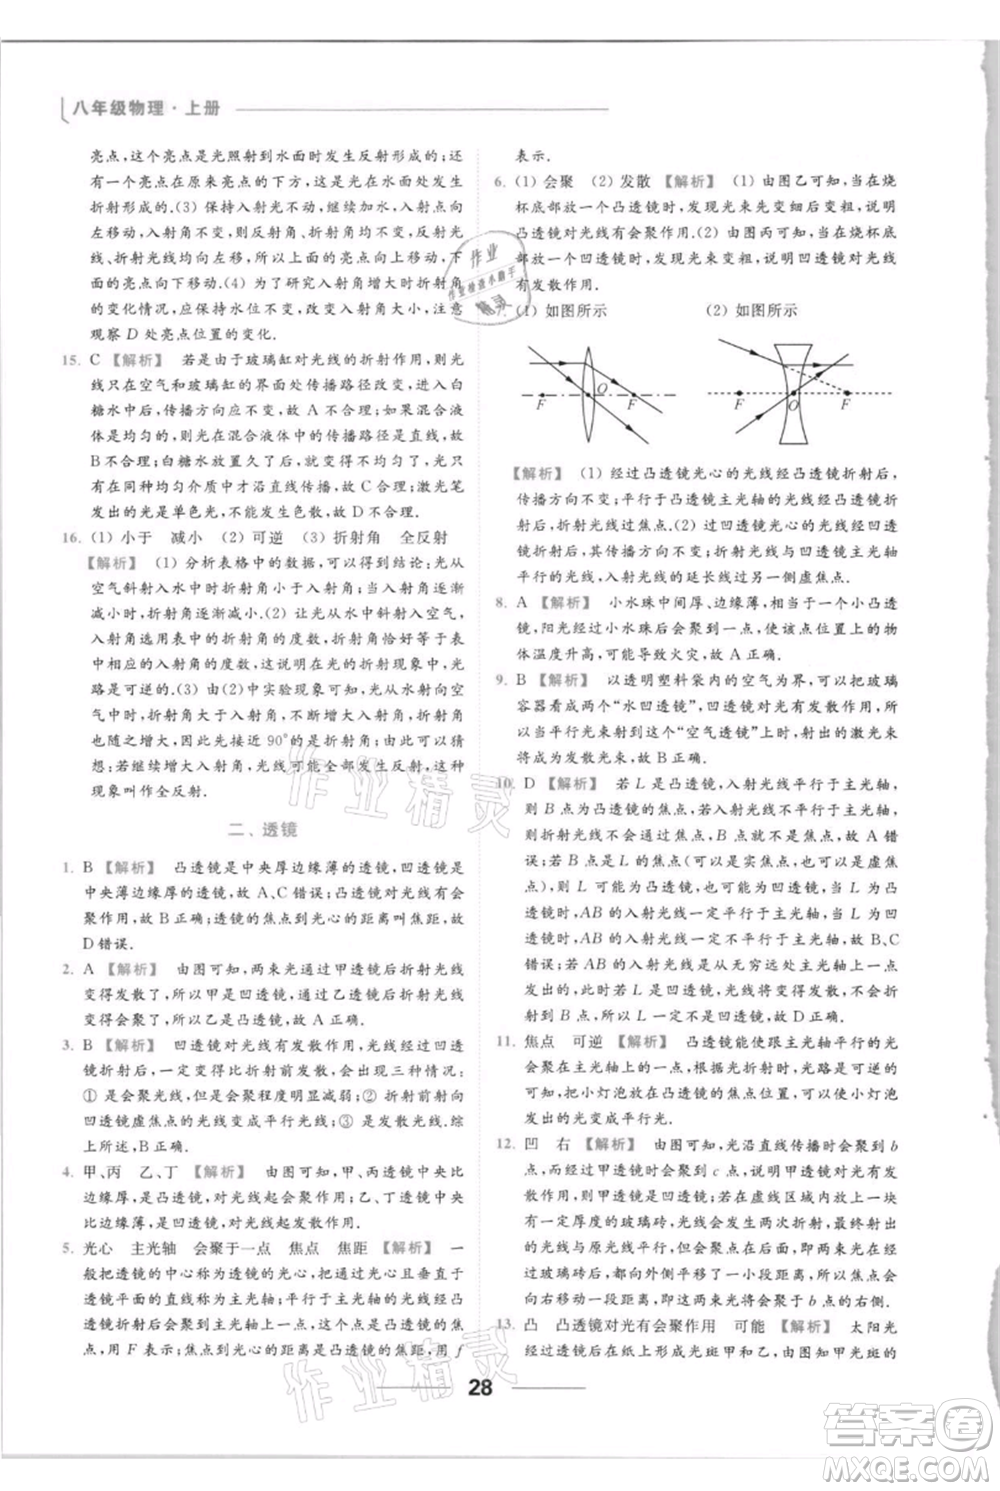 八年级物理·上册
亮点，这个亮点是光照射到水面时发生反射形成的；还
有一个亮点在原来亮点的下方，这个亮点是光在水面发生
折射形成的。(3) 保持入射光不动，继续加水，入射点向
右移动，入射角不变，折射角不变，折射光线向右平移，折射光
线与原折射光线平行，所以上面的亮点向左移动，下面的
亮点向下移动。(4) 为了研究入射角增大时折射角
的变化情况，应保持水位不变，改变入射角的大小，注意
观察 D 处亮点位置的变化。
15. C 【解析】 若是由于玻璃缸对光线的折射作用，则光
线只在空气和玻璃缸的界面处传播路径改变，进入白
糖水中后，传播方向应不变，故 A 不合理；如果混合液
体是均匀的，则光在混合液体中的传播路径是直线，故
B不合理；白糖水放置久了后，就变得不均匀了，而光只
有在同种均匀介质中才沿直线传播，故 C 合理；激光笔
发出的光是单色光，不能发生色散，故 D 不合理.
16. (1) 小于 减小 (2) 可逆 (3) 折射角 全反射
【解析】 (1) 分析表格中的数据，可以得到结论：光从
空气斜射入水中时折射角小于入射角；当入射角逐渐
减小时，折射角逐渐减小。(2) 让光从水中射入空气，
入射角选用表中的折射角的度数，折射角恰好等于表
中对应的入射角的度数，这说明在光的折射现象中，光
路是可逆的。(3) 由(2)中实验现象可知，光从水射向空
气时，折射角大于入射角，不断增大入射角，则折射角
也随之增大，因此先接近 90°的是折射角；根据以上猜
想：当继续增大入射角，光线可能会全部发生反射，这种
现象叫作全反射.
二、透镜
1. B 【解析】 凸透镜是中央厚边缘薄的透镜，凹透镜是
中央薄边缘厚的透镜，故 A、C 错误；凸透镜对光线有会
聚作用，故 B 正确；透镜的焦点到光心的距离叫焦距，故
D 错误.
2. A 【解析】 由图可知，两束光经过甲透镜后折射光线
变得发散了，所以甲是凹透镜；通过乙透镜后折射光线
变得会聚了，所以乙是凸透镜；故 A 正确.
3. B 【解析】 凹透镜对光线有发散作用，光线经凹透镜
折射后，一定变得比折射前发散，有以下三种情况：
① 是会聚光线，但会聚程度明显减弱；② 折射前射向
凹透镜虚焦点的光线变成平行光线；③ 是发散光线.综
上所述，B正确.
4. 甲、丙 乙、丁 【解析】 由图可知，甲、丙透镜中央比
边缘厚，是凸透镜，对光线有会聚作用，乙、丁透镜中央
比边缘薄，是凹透镜，对光线有发散作用.
5. 光心 主光轴 会聚于一点 焦点 焦距 【解析】 一
般把透镜的中心称为透镜的光心，把通过光心且垂直于
透镜平面的直线称为主光轴；平行于主光轴的光线经凸
透镜折射后会聚于一点，这一点叫作凸透镜的焦点，常
用 F 表示，焦点到光心的距离叫作凸透镜的焦距，用 f
表示.
6. (1) 会聚 (2) 发散 【解析】 (1) 由图乙可知，当在烧
杯底部放一个凸透镜时，发现光束先变细后变粗，说明
凸透镜对光有会聚作用。(2) 由图丙可知，当在烧杯底部
放一个凹透镜时，发现光束变粗，说明凹透镜对光线
有发散作用.
(1) 如图所示 (2) 如图所示
F O F
F O F
【解析】 (1) 经过凸透镜光心的光线经凸透镜折射后，
传播方向不变；平行于凸透镜主光轴的光线经凸透镜折
射后，折射光线过焦点。(2) 过凹透镜光心的光线经凹透
镜折射后，传播方向不改变；折射后与凹透镜主光轴
平行的光线，其入射光线的延长线过另一侧虚焦点.
8. A 【解析】 小水珠中间厚、边缘薄，相当于一个小凸透
镜，阳光经过小水珠后会聚到一点，使该点位置上的物
体温度升高，可能导致火灾，故 A 正确.
9. B 【解析】 以透明塑料袋内的空气为界，可以把玻璃
容器看成两个“水凹透镜”，凹透镜对光有发散作用，所
以当平行激光束通过这个“空气透镜”后，射出的激光束
将成为发散光束，故 B 正确.
10. D 【解析】 若 L 是凸透镜，入射光线平行于主光轴，
则 B 点为焦点；若 B 点不为焦点，则入射光线不平行
于主光轴，但折射光线仍可与主光轴相交，故 A 错误；
如果 B 点是L 的焦点(可以是实焦点，也可以是虚焦
点)，则 L 可能是凸透镜，也可能是凹透镜，当 L 为凸
透镜时，AB 的入射光线一定平行于主光轴，当 L 为凹
透镜时，AB 的入射光线一定不平行于主光轴，故 B、C
错误；如果AB 的入射光线是由无穷远处主光轴上一点
发出的，则一定是平行光线，光线将变得发散或会聚，
所以折射前后的光线不可能平行，故 D 正确.
11. 焦点 可逆 【解析】 凸透镜能使跟主光轴平行的光
会聚在主光轴上的焦点处，根据光的折射中光路可逆，
把小灯泡放在凸透镜的焦点处，可以使小灯泡
发出的光变成平行光.
12. 凹 右 【解析】 由图可知，光沿直线传播时会聚到 b
点，加甲透镜时会聚到 c 点，说明甲透镜对光有发散
作用，则甲透镜是凹透镜；若在虚线区域内放上一块
有一定厚度的玻璃砖，光线会发生两次折射，最终射出
的光线与原光线平行且向外平移一小段距离，所以光线会
向右移动一小段距离，则光会聚点在 b 点的右侧.
13. 凸 凸透镜对光有会聚作用 可能 【解析】 太阳光
经过镜片后在纸上形成光斑甲和乙，由图可知，光斑的
28